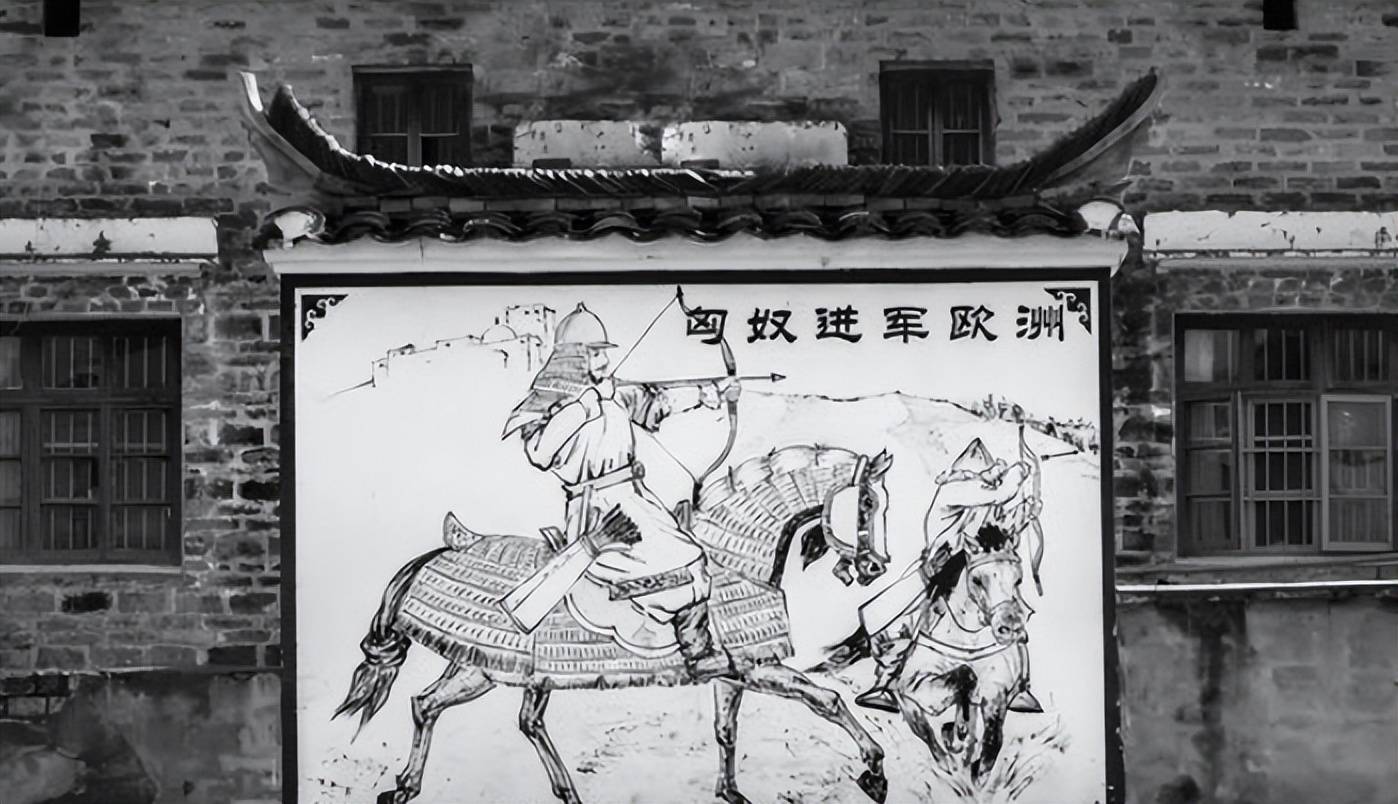 匈奴进军欧洲